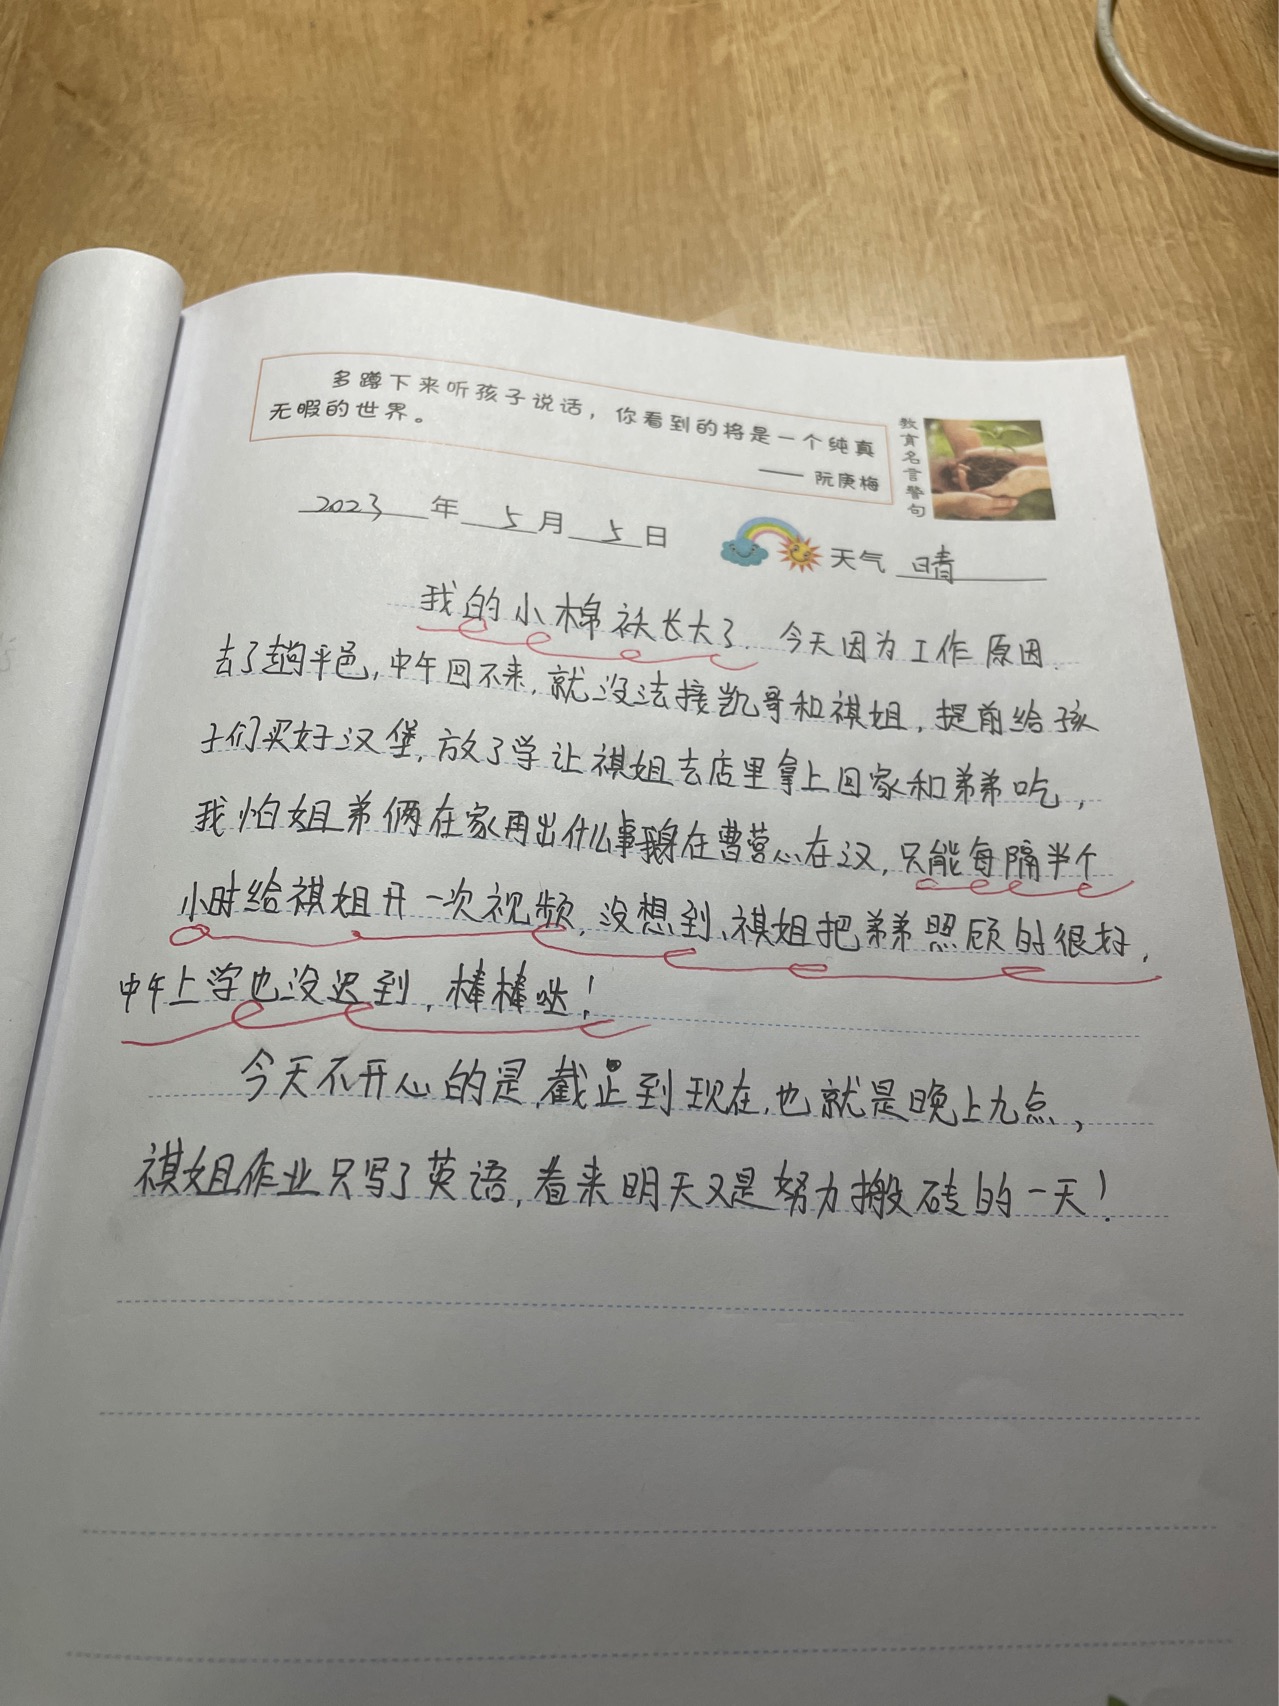 多蹲下来听孩子说话，你看到的将是一个纯真
无暇的世界。
—— 阮庚梅
教育名言警句
2023年5月5日
天气 晴
我的小棉袄长大了. 今天因为工作原因.
去了趟平邑,中午回不来,就没法接凯哥和祺姐,提前给孩
子们买好汉堡,放了学让祺姐去店里拿上回家和弟弟吃,
我怕姐弟俩在家再出什么事身在曹营心在汉,只能每隔半个
小时给祺姐开一次视频,没想到、祺姐把弟弟照顾的很好,
中午上学也没迟到,棒棒哒!
今天不开心的是,截止到现在,也就是晚上九点,
祺姐作业只写了英语,看来明天又是努力搬砖的一天!